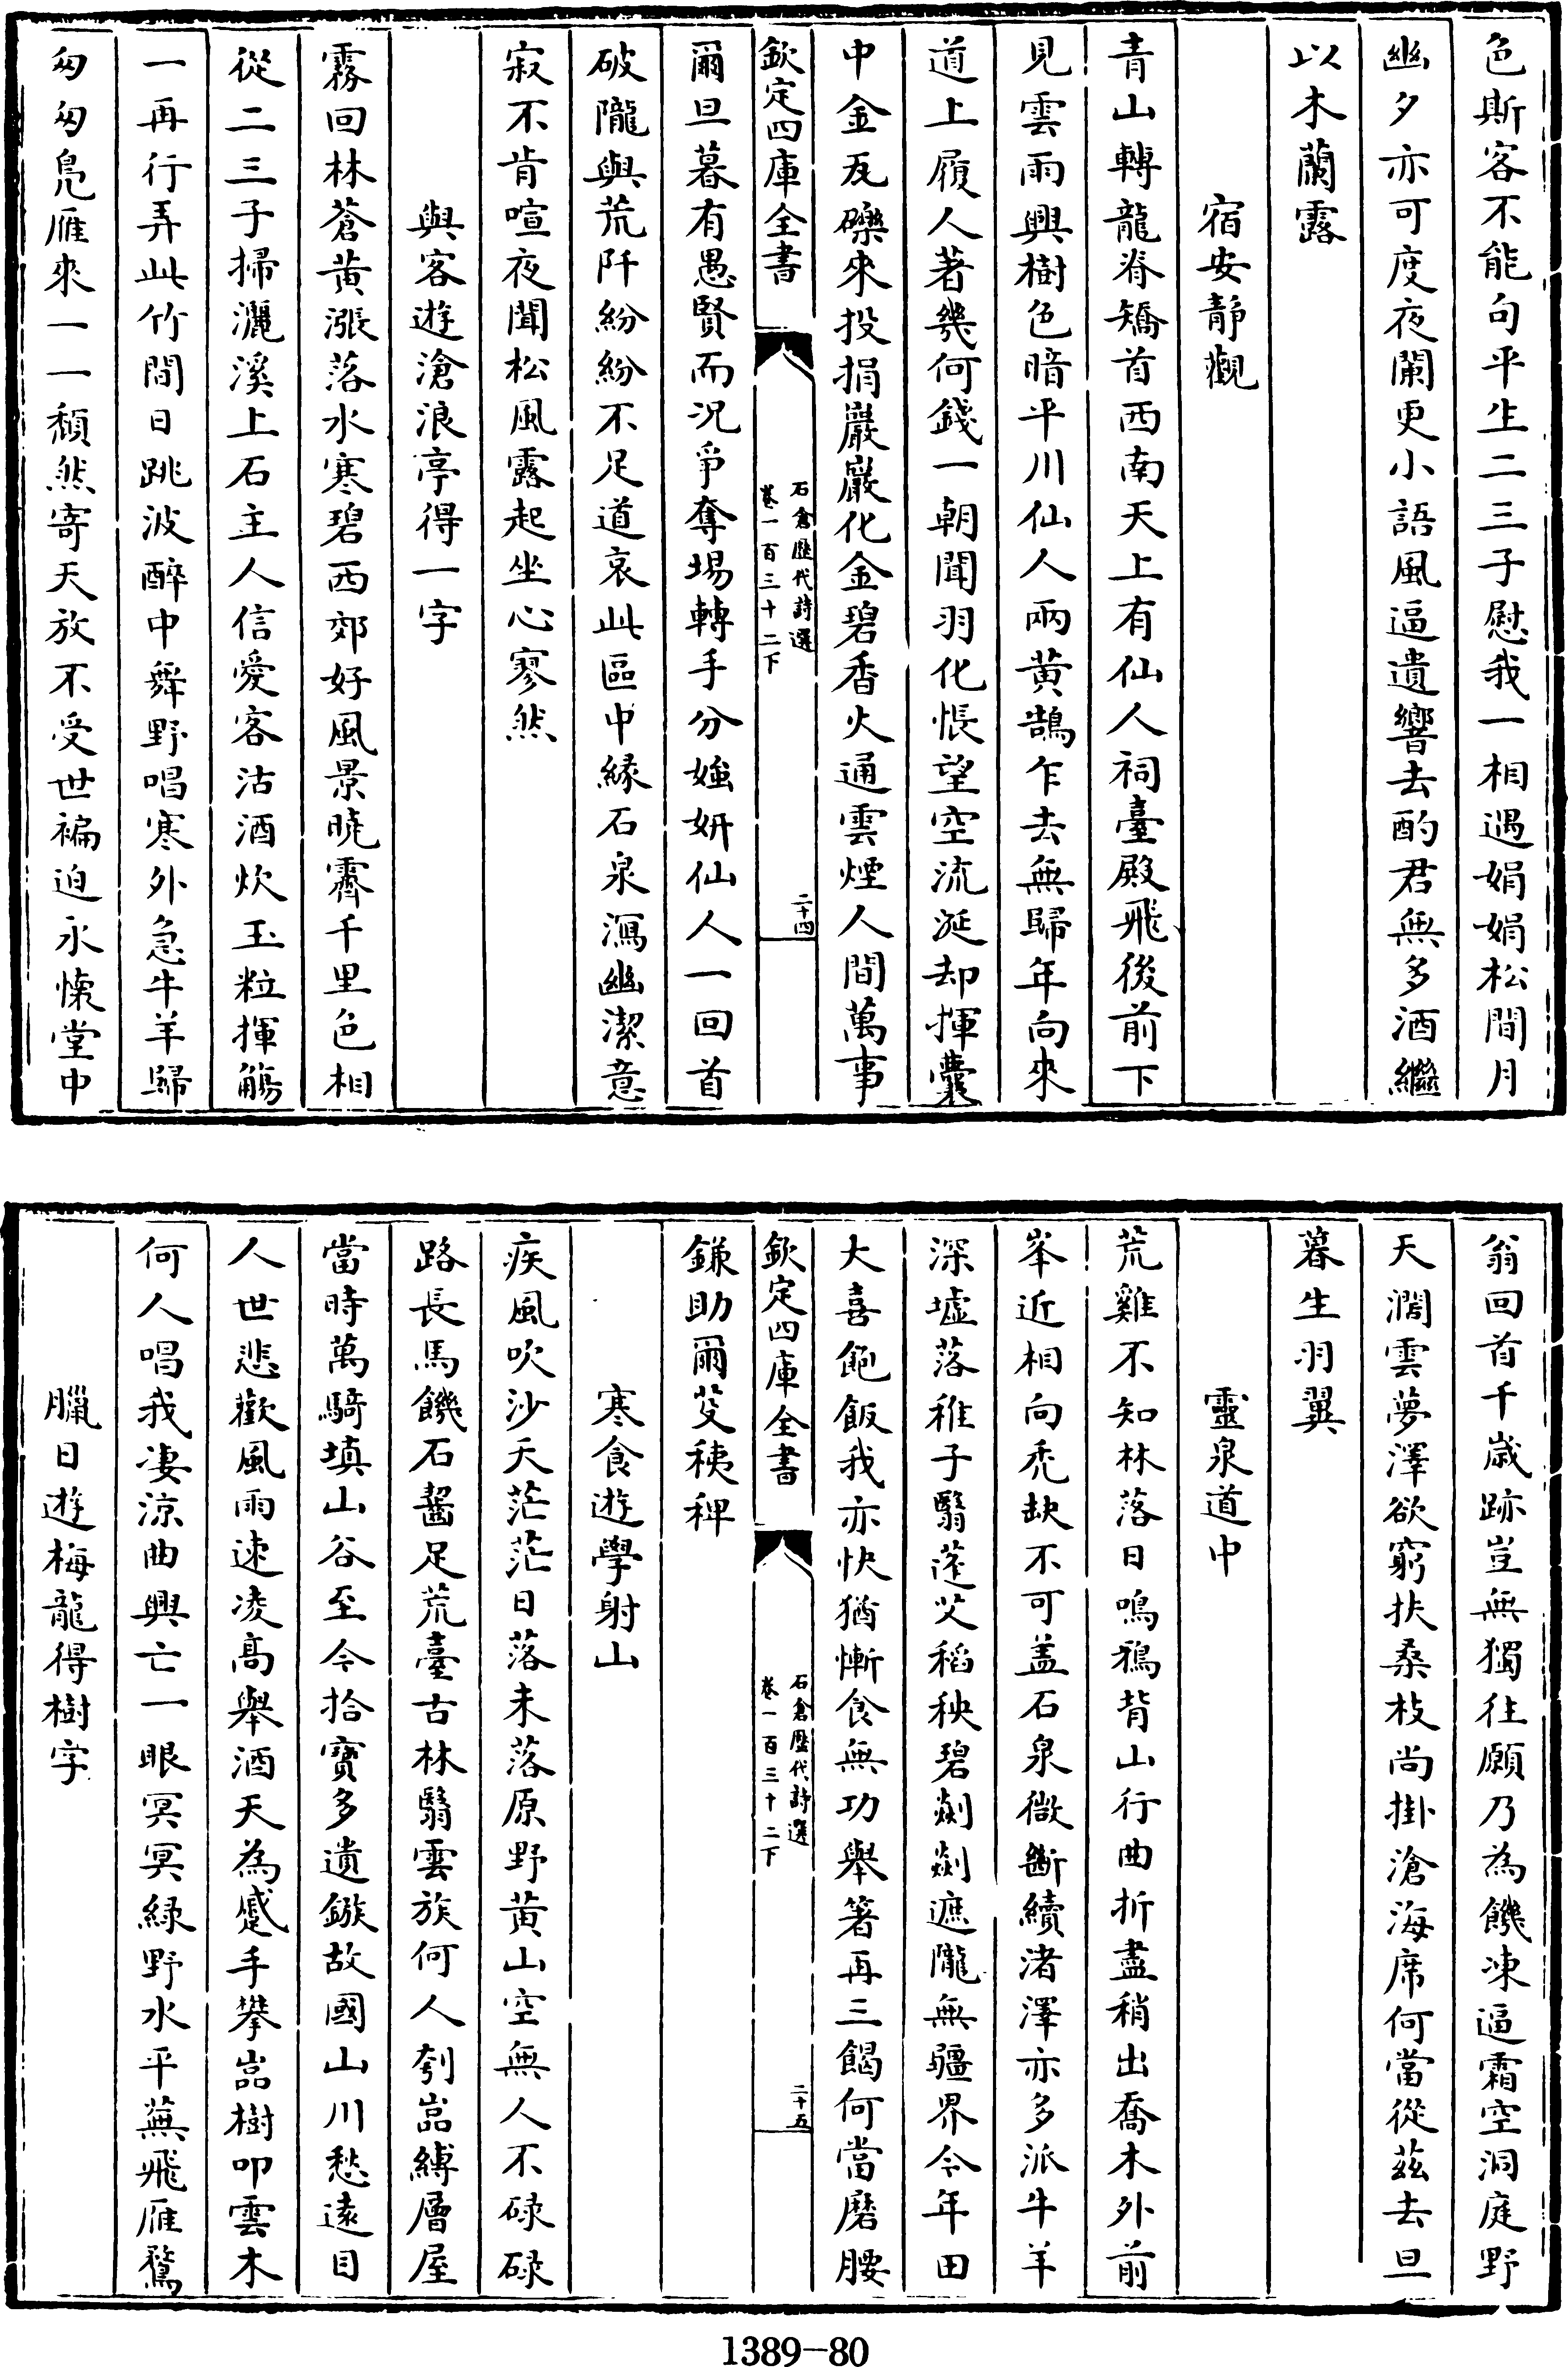 色斯客不能句平生二三子慰我一相遇娟娟松間月
幽夕亦可度夜闌更小語風逼遺響去酌君無多酒繼
以木蘭露
宿安靜觀
青山轉龍脊矯首西南天上有仙人祠臺殿飛後前下
見雲雨興樹色暗平川仙人兩黃鵠乍去無歸年向來
道上履人著幾何錢一朝聞羽化悵望空流涎却揮囊
中金瓦礫來投捐巖巖化金碧香火通雲煙人間萬事
欽定四庫全書
石倉歷代詩選
卷一百三十二下
二十四
爾旦暮有愚賢而況爭奪場轉手分媸妍仙人一回首
破隴與荒阡紛紛不足道哀此區中緣石泉瀉幽潔意
寂不肯喧夜聞松風露起坐心寥然
與客遊滄浪亭得一字
霧回林蒼黃漲落水寒碧西郊好風景曉霽千里色相
從二三子掃灑溪上石主人信愛客沽酒炊玉粒揮觴
一再行弄此竹間日跳波醉中舞野唱寒外急牛羊歸
匆匆鳧雁來一一頹然寄天放不受世褊迫永懷堂中
翁回首千歲跡豈無獨往願乃為饑凍逼霜空洞庭野
天濶雲夢澤欲窮扶桑枝尚掛滄海席何當從兹去旦
暮生羽翼
靈泉道中
荒雞不知林落日鳴鴉背山行曲折盡稍出喬木外前
峯近相向禿缺不可盖石泉微斷續渚澤亦多派牛羊
深墟落稚子翳蓬艾稻秧碧剡剡遮隴無疆界今年田
大喜飽飯我亦快猶慚食無功舉箸再三餲何當磨腰
欽定四庫全書
石倉歷代詩選
卷一百三十二下
二十五
鎌助爾芟稊稗
寒食遊學射山
疾風吹沙天茫茫日落未落原野黃山空無人不碌碌
路長馬饑石齧足荒臺古林翳雲族何人刳嵓縛層屋
當時萬騎填山谷至今拾寶多遺鏃故國山川愁遠目
人世悲歡風雨速凌高舉酒天為蹙手攀嵓樹叩雲木
何人唱我凄涼曲興亡一眼冥冥綠野水平蕪飛雁鶩
臘日遊梅龍得樹字
1389-80